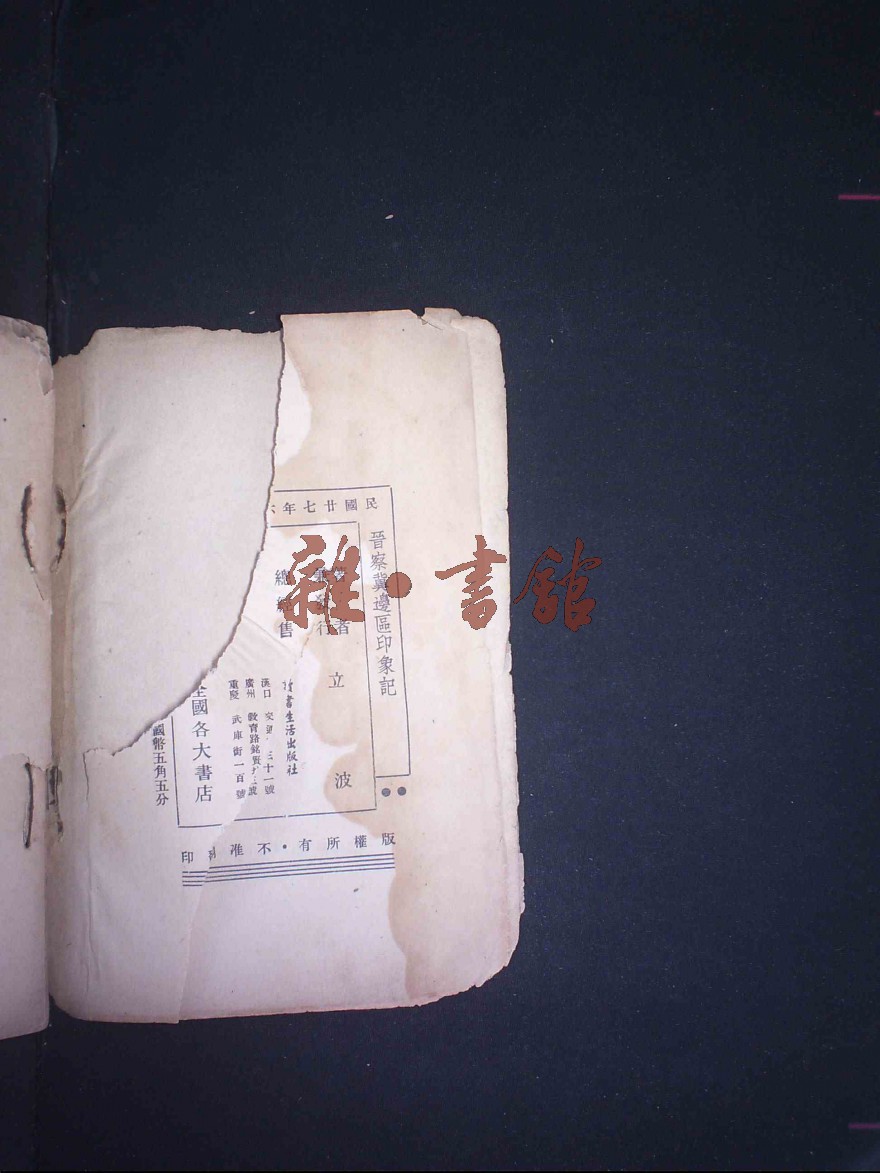 民國廿七年六
晉察冀邊區印象記
者 立 波
行
讀書生活出版社
漢口 交通 三十一號
廣州 教育路銘賢坊
重慶 武庫街一百號
總經售
全國各大書店
國幣五角五分
版權所有·不准 印
雜·書館